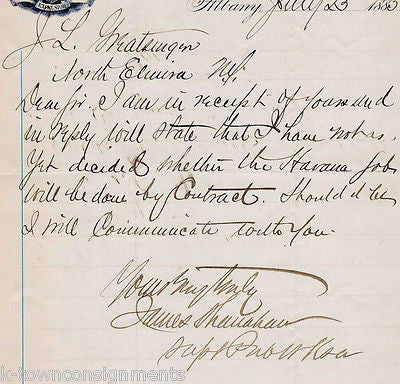 Albany July 23 1883
J. L. Greatsinger
North Elmira NY.
Dear Sir. I am in receipt of yours and
in reply will state that I have not as
Yet decided whether the Havana Job
Will be done by Contract. Should it be
I will Communicate with You.
Yours very truly
James Shanahan
Supt Pub Wks
k-townconsignments